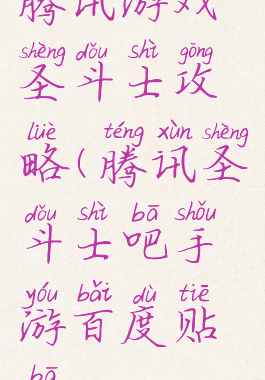 腾讯游戏
shèng dǒu shì gōng
圣斗士攻
lüè téng xùn shèng
略(腾讯圣
dǒu shì bā shǒu
斗士吧手
yóu bǎi dù tiē
游百度贴
bā